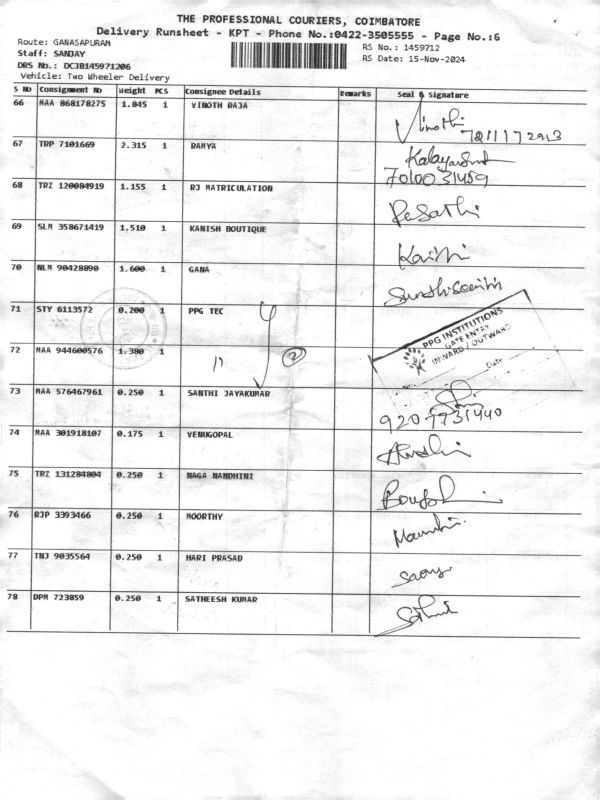 THE PROFESSIONAL COURIERS, COIMBATORE
Delivery Runsheet - KPT - Phone No.:0422-3505555 - Page No.:6
Route: GANASAPURAM
Staff: SANJAY
DRS No.: DCJB145971206
Vehicle: Two Wheeler Delivery
RS No.: 1459712
RS Date: 15-Nov-2024
S No Consignment No Weight PCS Consignee Details Remarks Seal & Signature
66 MAA 868178275 1.845 1 VINOTH RAJA Vinoth
67 TRP 7101669 2.315 1 RAMYA
7010031459
68 TRZ 120084919 1.155 1 RJ MATRICULATION
69 SLM 358671419 1.510 1 KANISH BOUTIQUE
70 NLM 90428890 1.600 1 GANA
71 STY 6113572 0.200 1 PPG TEC
PPG INSTITUTIONS
GATE ENTRY
INWARD / OUTWARD
Date
72 MAA 944600576 1.380 1 " 2
73 MAA 576467961 0.250 1 SANTHI JAYAKUMAR
74 MAA 301918107 0.175 1 VENUGOPAL
75 TRZ 131284804 0.250 1 NAGA NANDHINI
76 RJP 3393466 0.250 1 MOORTHY
77 TNJ 9035564 0.250 1 HARI PRASAD
78 DPM 723859 0.250 1 SATHEESH KUMAR